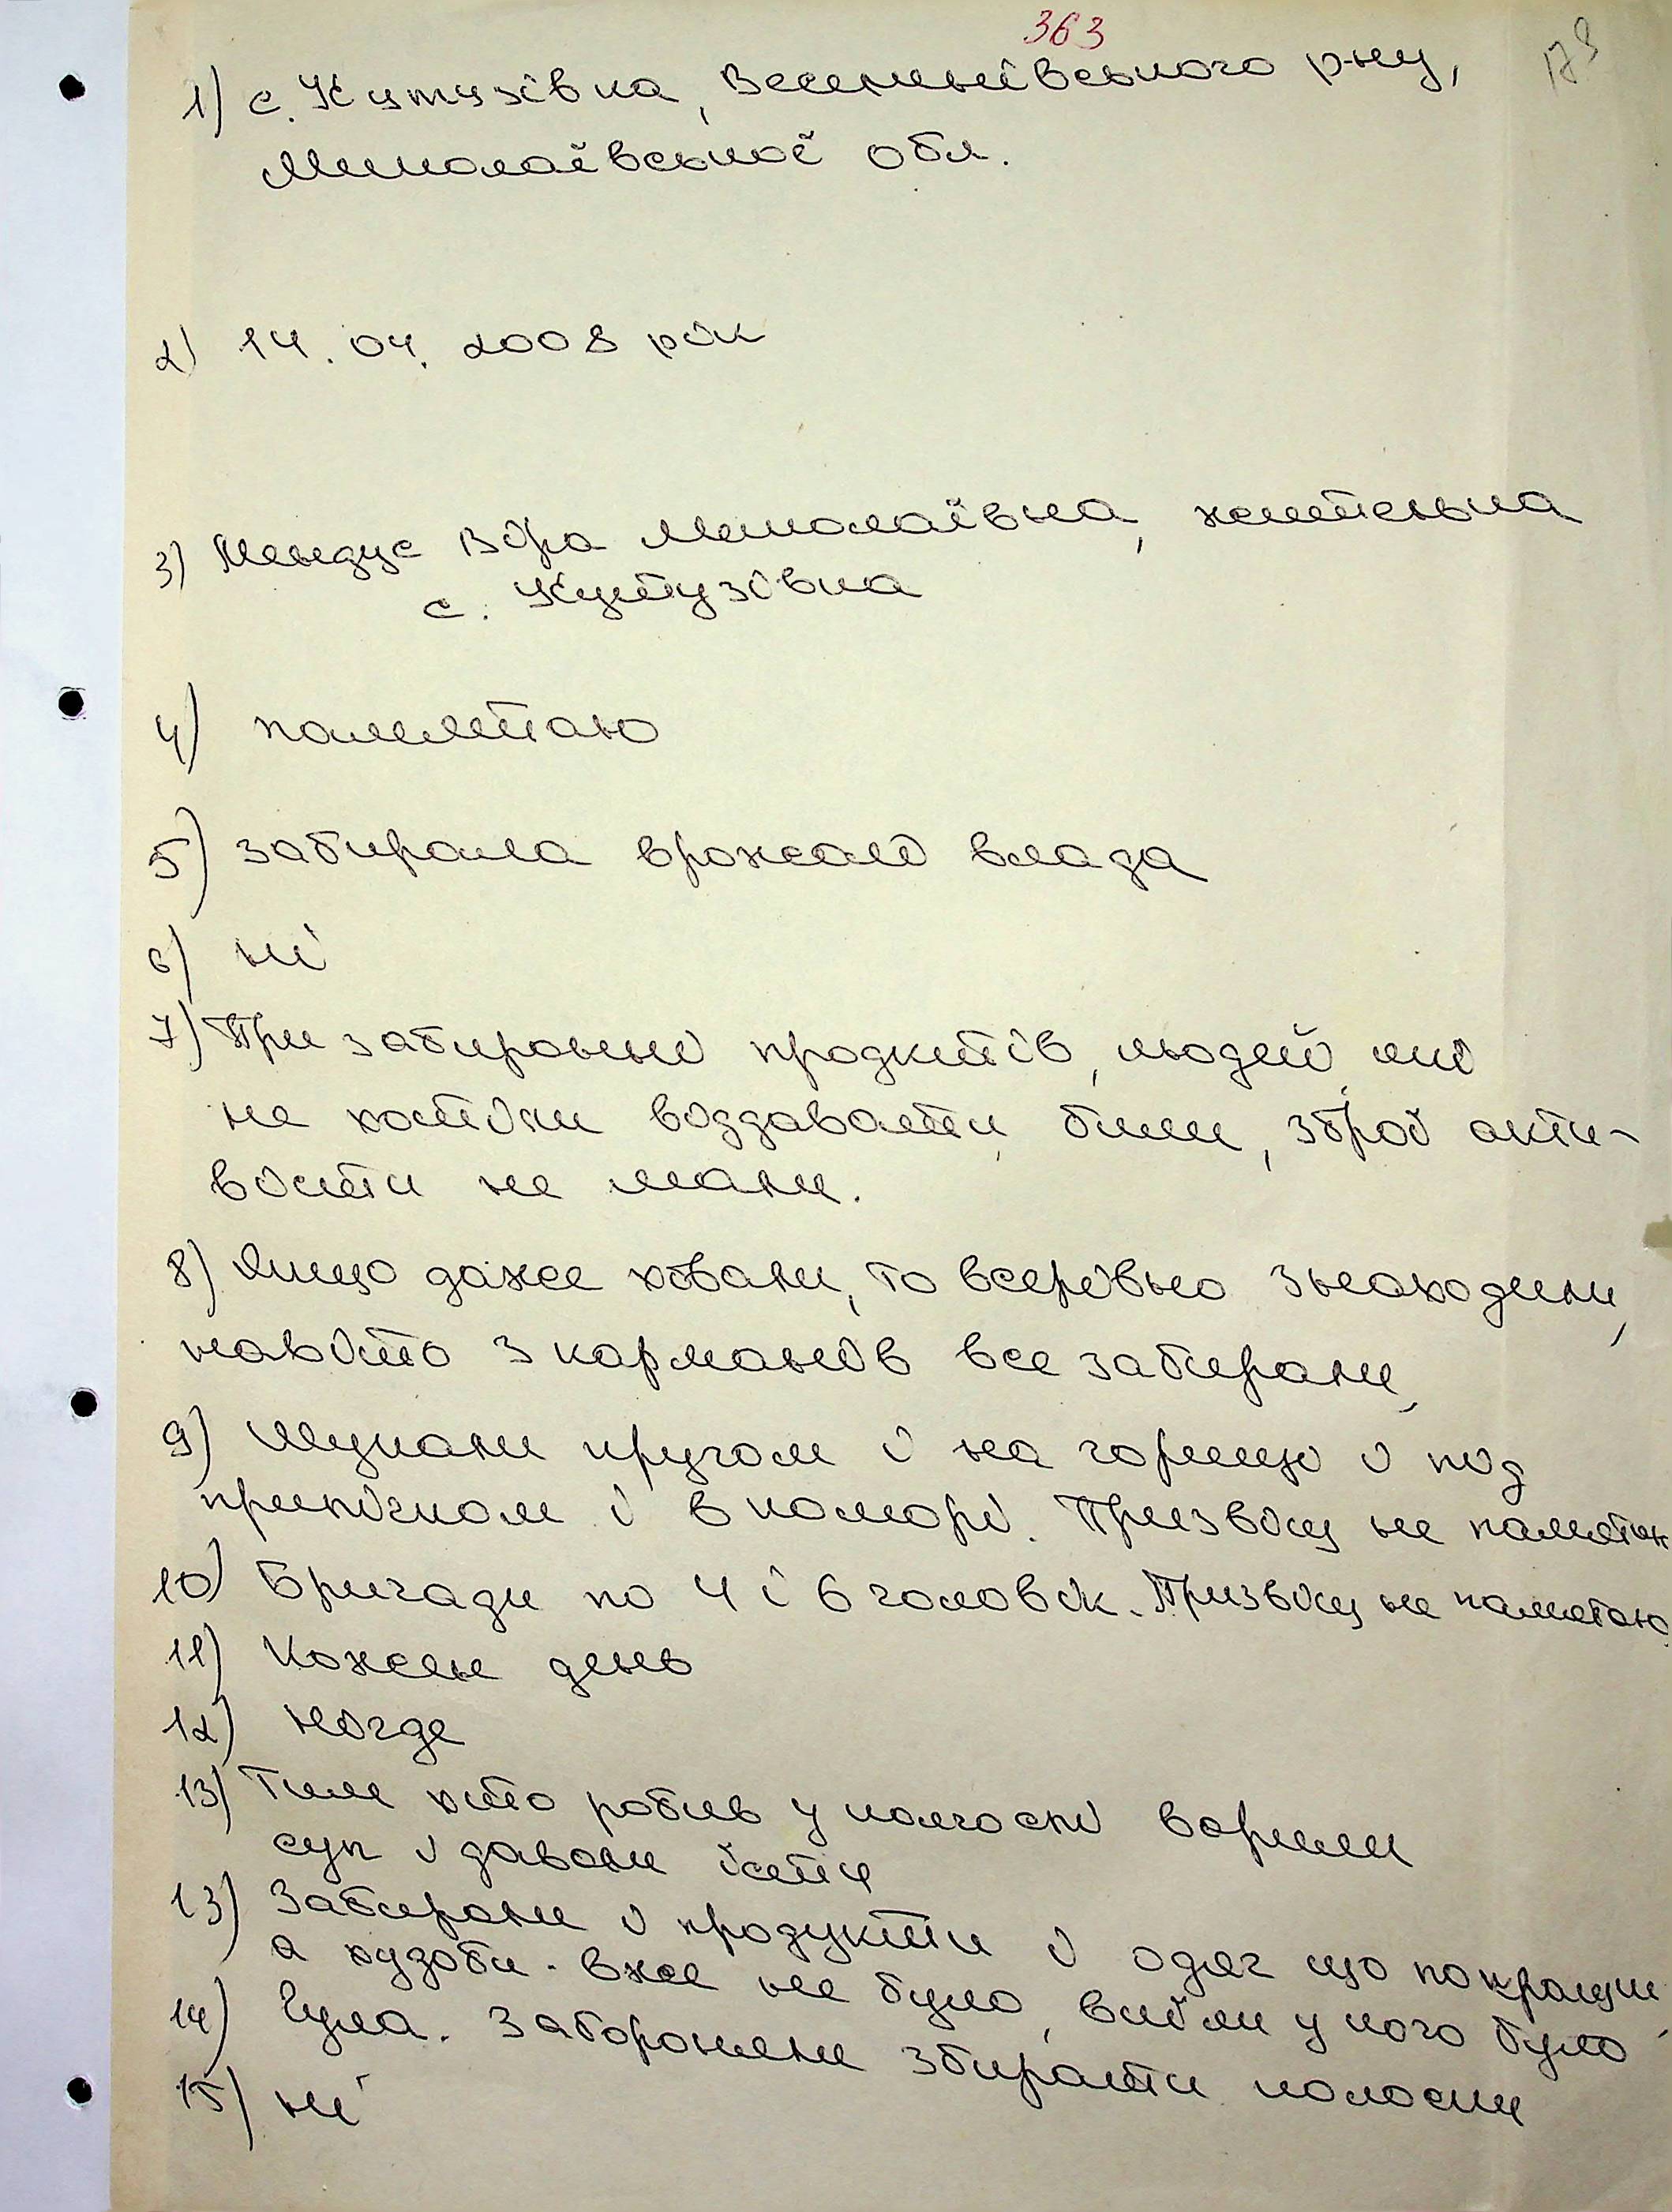 363
179
1) с. Кутузівка, Веселинівського р-ну,
Миколаївської обл.
2) 14. 04. 2008 рік
3) Мендус Віра Миколаївна, жителька
с. Кутузівка
4) памлятаю
5) забирала врожай влада
6) ні
7) При забиранні продктів, людей, які
не хотіли віддавати, били, зброї акти-
вісти не мали.
8) Якщо даже ховали, то всерівно знаходили,
навіть з карманів все забирали,
9) Шукали кругом і на горищі і під
припічком і в коморі. Призвіщ не памятаю
10) Бригади по 4 і 6 чоловік. Призвіщ не памятаю.
11) Кожен день
12) нігде
13) Тим хто робив у колгоспі варили
суп і давали їсти
13) Забирали і продукти і одяг що покращи
а худоби вже не було, вбили у кого було
14) Чула. Забороняли збирати колоски
15) ні